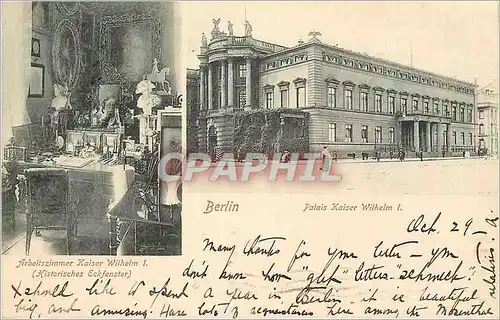 Berlin
Palais Kaiser Wilhelm I.
Arbeitszimmer Kaiser Wilhelm I.
(Historisches Eckfenster)
CPHIL.com
Oct. 29 -
Many thanks for your letter - you
don't know how "gut" letters "schmeck"!
I should like to spend a year in Berlin. it is beautiful
big, and amusing. Have lots of acquaintances here among the Mosenthal